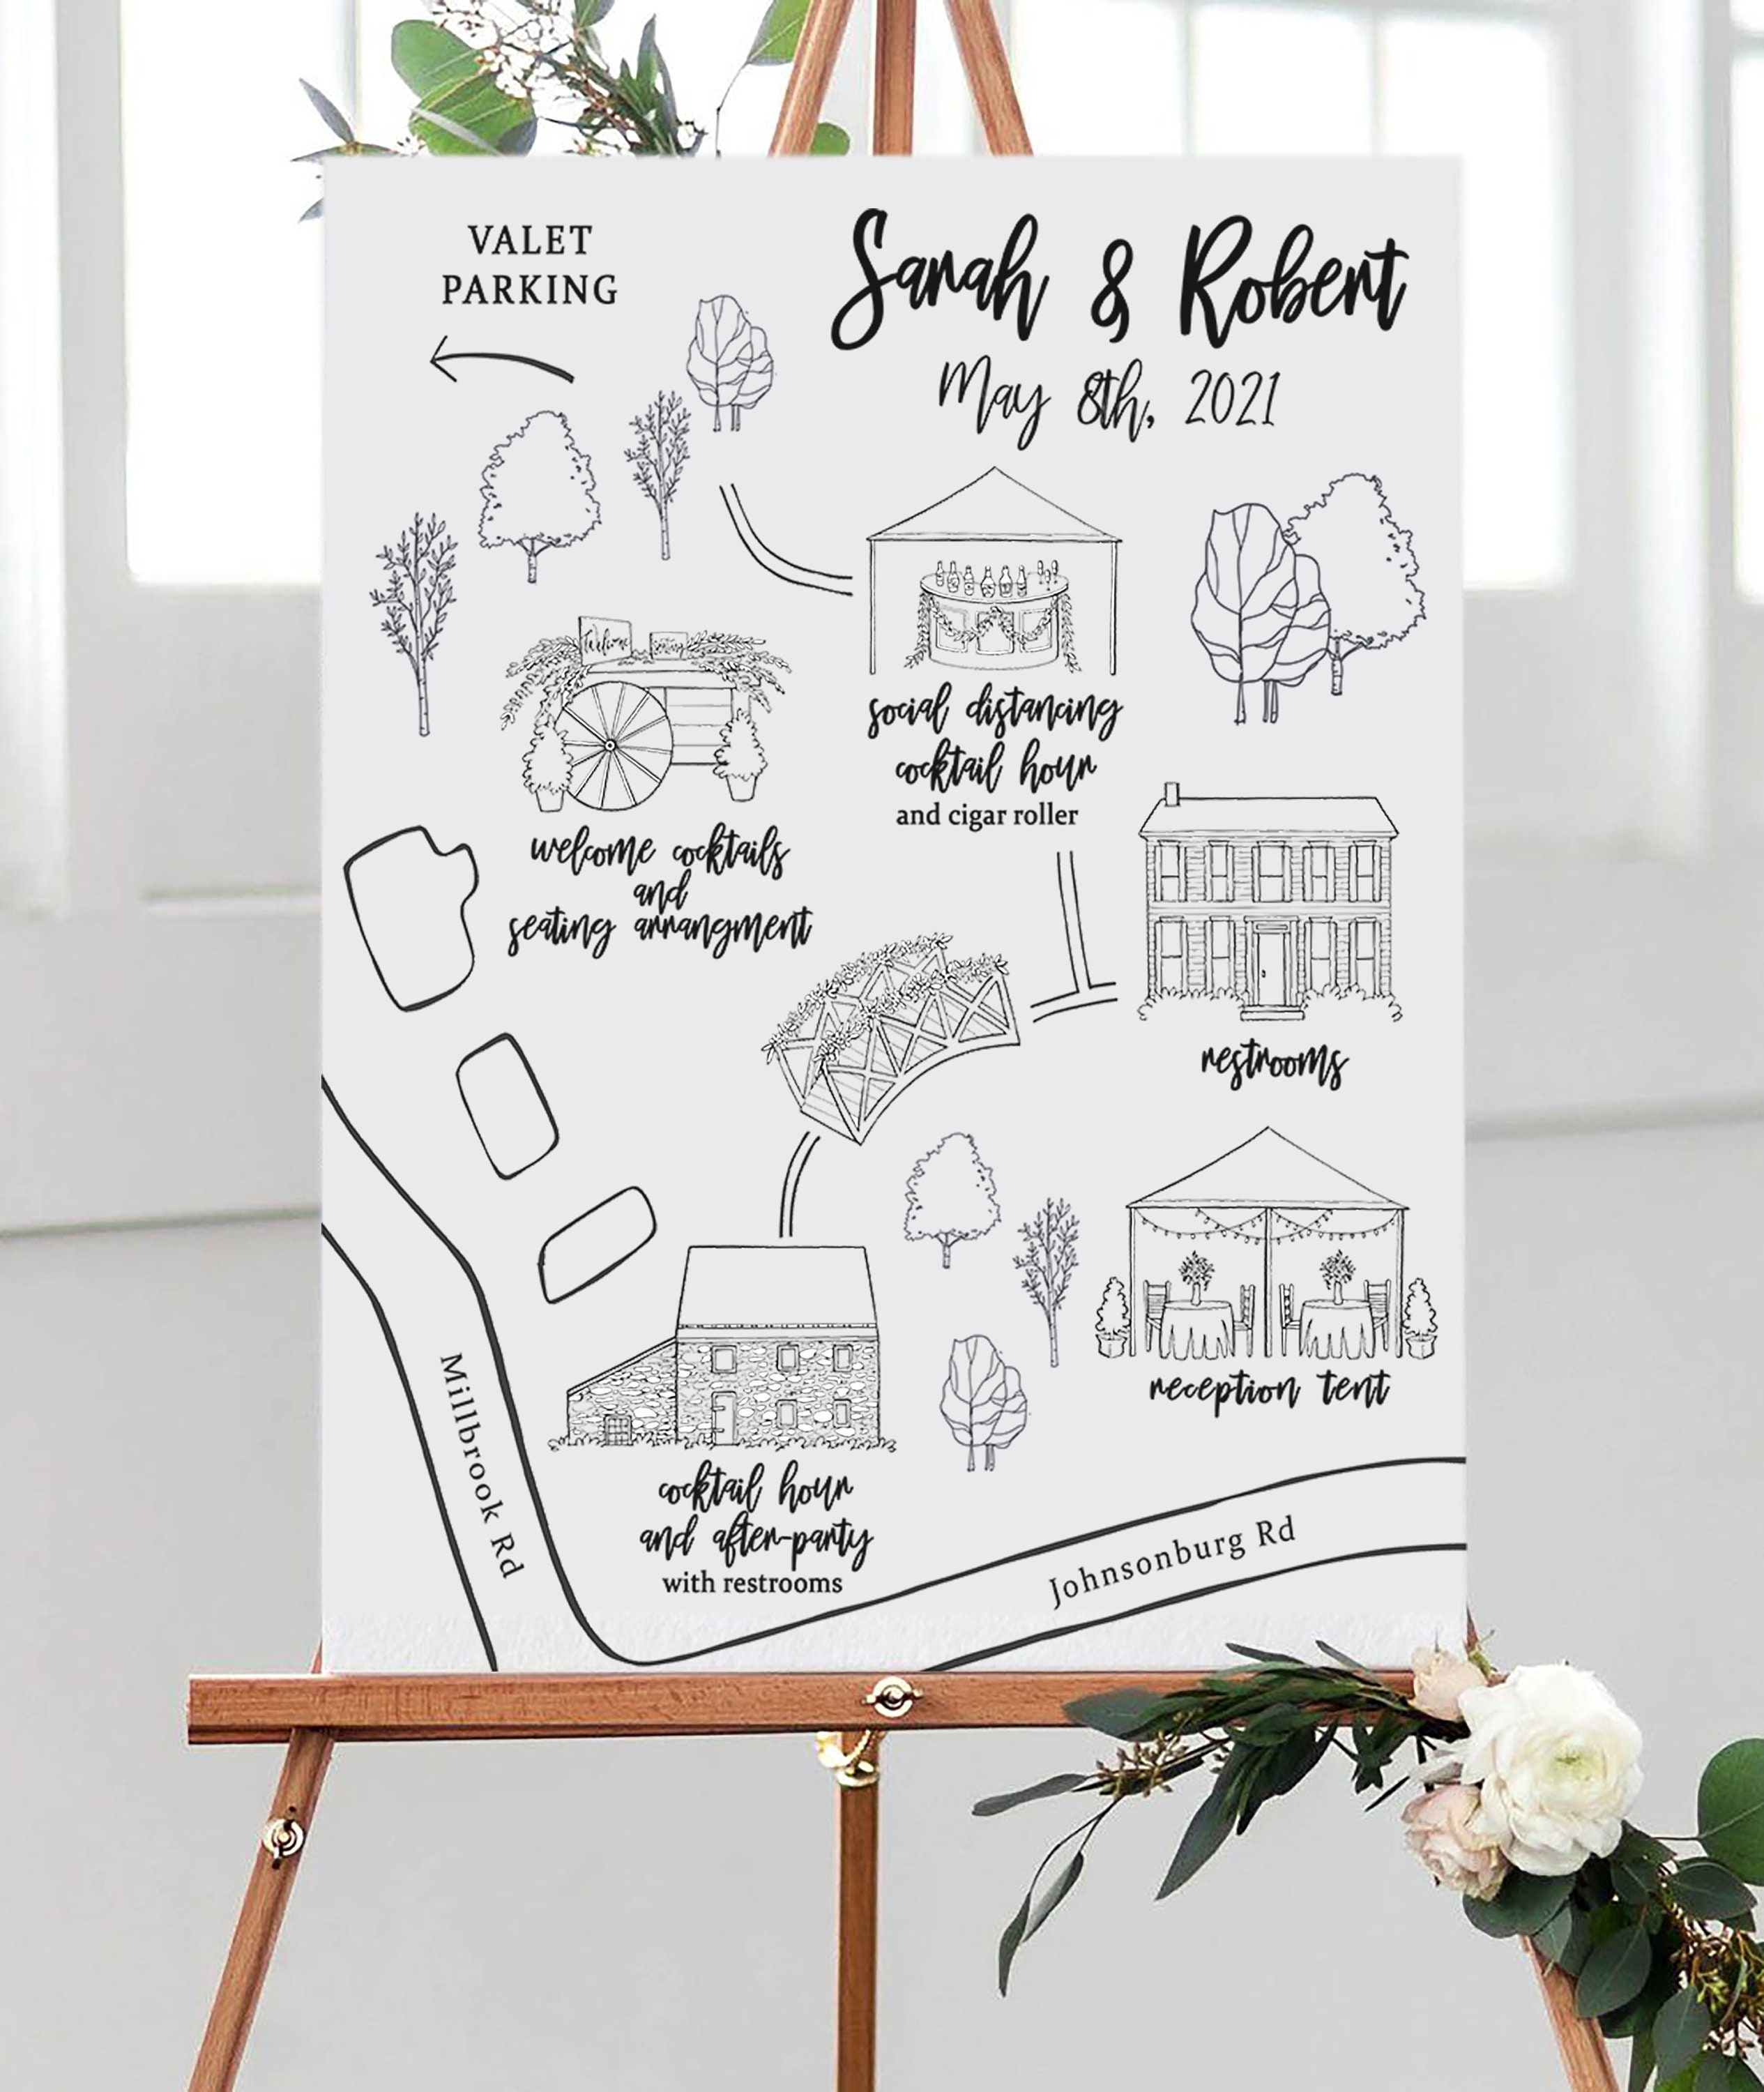 VALET
PARKING
Sarah & Robert
May 8th, 2021
Welcome
social distancing
cocktail hour
and cigar roller
welcome cocktails
and
seating arrangment
restrooms
reception tent
cocktail hour
and after-party
with restrooms
Millbrook Rd
Johnsonburg Rd